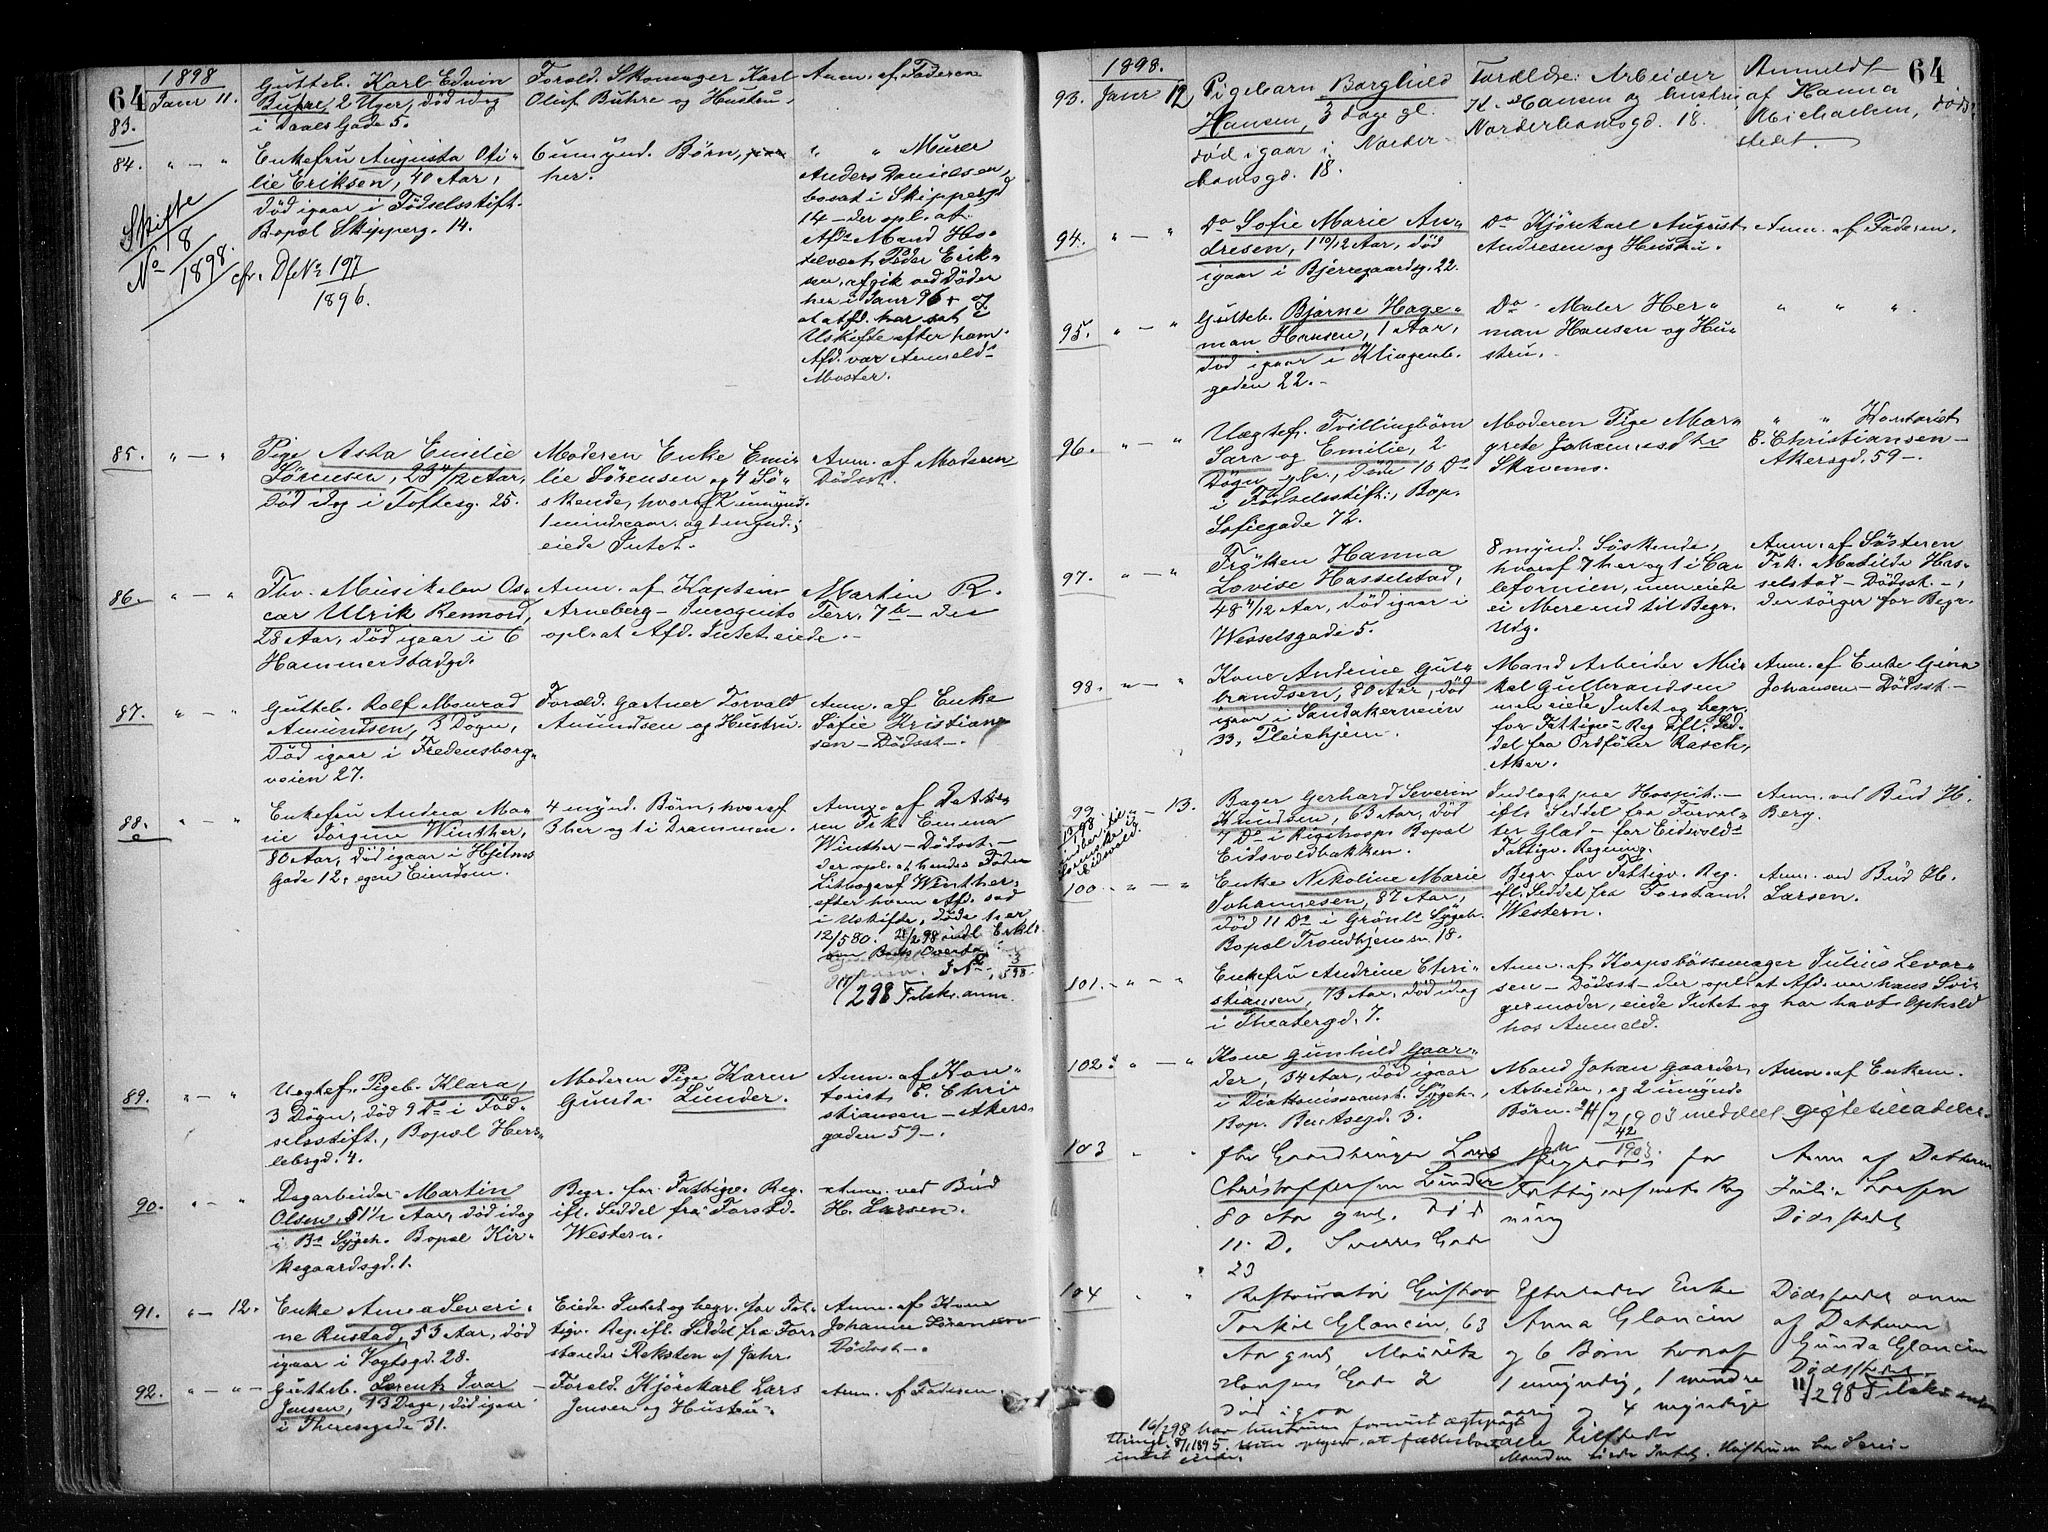 64
1898
83.
Janr 11.
Gutteb. Karl Edvin
Buhre, 2 Uger, død idag
i Daels Gade 5.
Foræld. Skomager Karl
Oluf Buhre og Hustru.
Anm. af Faderen
84.
" — "
Enkefru Augusta Oti-
lie Eriksen, 40 Aar,
død igaar i Fødselsstift.
Bopæl Skipperg. 14.
Skifte
No 8/1898.
cfr. Df No 197/1896.
6 umynd. Børn,
her.
" " Murer
Anders Danielsen,
bosat i Skippergd
14 — der opl. at
Afds Mand Ho-
telvært Peder Erik-
sen, afgik ved Døden
her i Janr 96 og
at afd. har sat i
Uskifte efter ham.
Afd. var Anmelds
Moster.
85.
" — "
Pige Asta Emilie
Sørensen, 23 11/12 Aar,
død idag i Toftesg. 25.
Moderen Enke Emi-
lie Sørensen og 4 Sø-
skende, hvoraf 2 umynd.
1 mindreaar. og 1 mynd.;
eiede Intet.
Anm. af Moderen
Dødsst.
86.
" — "
Fhv. Musikelev Os-
car Ulrik Rennord,
28 Aar, død igaar i 6
Hammerstadgd.
Anm. af Kaptein Martin R.
Arneberg — Incognito Terr. 7de — der
opl. at Afd. Intet eiede. —
87.
" — "
Gutteb. Rolf Monrad
Amundsen, 3 Døgn,
død igaar i Fredensborg-
veien 27.
Foræld. Gartner Torvald
Amundsen og Hustru.
Anm. af Enke
Sofie Kristian-
sen — Dødsst —.
88.
" — "
Enkefru Andrea Ma-
rie Jørgine Winther,
80 Aar, død igaar i Hjelms
Gade 12, egen Eiendom.
4 mynd. Børn, hvoraf
3 her og 1 i Drammen.
Anm. af Datte-
ren Frk. Emma
Winther — Dødsst. —
der opl. at hendes Fader
Lithograf Winther,
efter hvem Afd. sad
i Uskifte, døde
12/5 80.
11/2 98 Tilsk. anm.
89.
" — "
Uegtef. Pigeb. Klara,
3 Døgn, død 9 Ds i Fød-
selsstift., Bopæl Hers-
lebsgd. 4.
Moderen Pige Karen
Gunda Lunder.
Anm. af Kon-
torist E. Chri-
stiansen — Akers-
gaden 59 —.
90.
" — "
Dagarbeider Martin
Olsen, 51½ Aar, død idag
i Bs Sygeh. Bopæl Kir-
kegaardsgd. 1.
Begr. for Fattigv. Reg.
ifl. Seddel fra Forstd.
Western.
Anm. ved Bud
H. Larsen.
91.
" — 12.
Enke Anne Severi-
ne Rustad, 53 Aar, død
igaar i Vogtsgd. 28.
Eiede Intet og begr. for Fat-
tigv. Reg. ifl. Seddel fra For-
stander Reksten af Janr.
Anm. af Kone
Johanne Sørensen
Dødsst —.
92.
" — "
Gutteb. Lorentz Ivar
Jensen, 13 Dage, død igaar
i Theresegade 31.
Foræld. Kjørekarl Lars
Jensen og Hustru.
Anm. af Faderen.
64
1898.
93.
Janr 12
Pigebarn Borghild
Hansen, 3 Dage gl.
død igaar i Norder-
hovsgd. 18.
Forældre: Arbeider
K. Hansen og Hustru
Norderhovsgd. 18.
Anmeldt
af Hanna
Michaelsen, Døds-
stedet.
94.
" — "
Do Sofie Marie An-
dresen, 1 10/12 Aar, død
igaar i Bjerregaardsg. 22.
Do Kjørekarl August
Andresen og Hustru.
Anm. af Faderen.
95.
" — "
Gutteb. Bjarne Hage-
man Hansen, 1 Aar,
død igaar i Klingenb.
gaden 22. —
Do Maler Her-
man Hansen og Hu-
stru.
" " ".
96.
" — "
Uægtef. Tvillingbørn
Sara og Emilie, 2
Døgn gl., døde 10 Ds
i Fødselsstift., Bop.
Sofiegade 72.
Moderen Pige Mar-
grete Johannesdtr
Skavems.
" " Kontorist
E. Christiansen —
Akersgd. 59 —
97.
" — "
Frøken Hanna
Lovise Hasselstad,
48 11/12 Aar, død igaar i
Wesselsgade 5.
8 mynd. Søskende,
hvoraf 7 her og 1 i Ca-
lifornien, men eiede
ei Mere end til Begr.
Udg.
Anm. af Søsteren
Frk. Matilde Has-
selstad — Dødsst. —,
der sørger for Begr.
98.
" — "
Kone Andrine Gul-
brandsen, 80 Aar, død
igaar i Sandakerveien
33, Pleiehjem.
Mand Arbeider Mi-
kel Gulbrandsen
men eiede Intet og begr.
for Fattigv. Reg. ifl. Sed-
del fra Ordfører Rasch,
Aker.
Anm. af Enke Gina
Johansen — Dødsst —
99.
— 13.
Bager Gerhard Severin
Knudsen, 63 Aar, død
7 Ds i Rigshosp. Bopæl
Eidsvoldbakken.
Indlagt paa Hospit. —
ifl. Seddel fra Forval-
ter Glad — for Eidsvolds
Fattigv. Regning.
Anm. ved Bud H.
Berg.
100.
" — "
Enke Nikoline Marie
Johannesen, 87 Aar,
død 11 Ds i Grønl. Sygeh.
Bopæl Trondhjemsv. 18.
Begr. for Fattigv. Reg.
ifl. Seddel fra Forstand.
Western.
Anm. ved Bud H.
Larsen.
101.
" — "
Enkefru Andrine Chri-
stiansen, 73 Aar, død idag
i Theatergd. 7.
Anm. af Korpsbøssemager Julius Levor-
sen — Dødsst — der opl. at Afd. var hans Svi-
germoder, eiede Intet og har havt Ophold
hos Anmeld.
102.
" — "
Kone Gunhild Gaar-
der, 34 Aar, død igaar
i Diakonisseanst. Sygeh.,
Bop. Bentsegd. 3.
Mand Johan Gaarder,
Arbeider, og 2 umynd.
Børn. 24/2 1903 meddelt giftetilladelse.
42/1903.
Anm. af Enkem.
103
" "
fhv Gaardbruger Lars
Christoffersen Lunder
80 Aar gml. død
11. D. Sverres Gade
23
Begraves for
Fattigvæsenets Reg
ning
Anm af Datteren
Julie Larsen
Dødsstedet
104
" "
Restauratør Gustav
Torkil Glancin, 63
Aar gml, Mauritz
Hansens Gade 2
død igaar
Efterlader Enke
Anna Glancin
og 6 Børn hvoraf
1 umyndig, 1 mindre
aarig og 4 myndige
alle tilstede
Dødsfaldet anm
af Datteren
Gunda Glancin
Dødsstedet
11/2 98 Tilsk.
16/2 98 har
Manden eiede Intet.